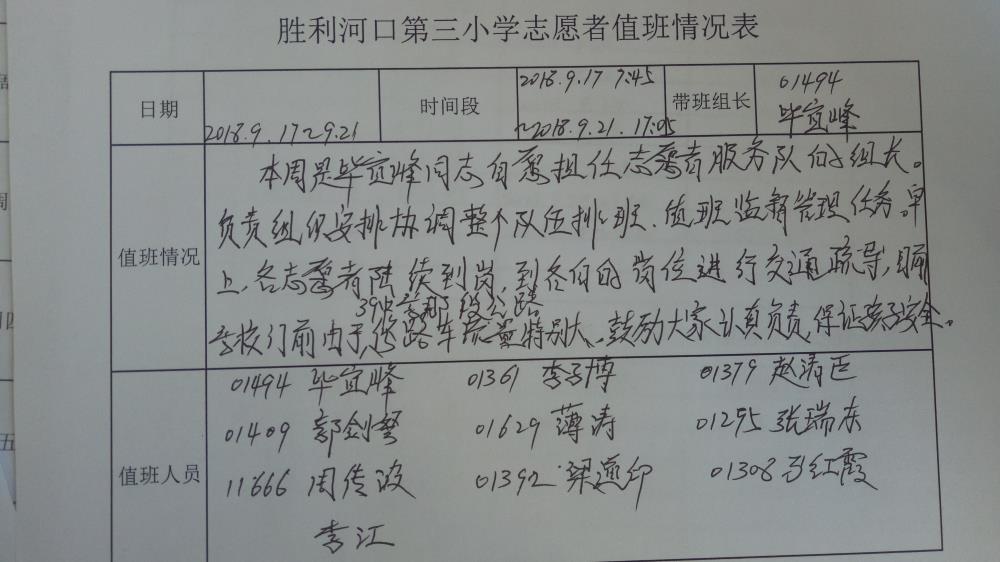 胜利河口第三小学志愿者值班情况表
日期 2018.9.17~9.21 时间段 2018.9.17 7:45 ~2018.9.21.17:05 带班组长 01494 毕宜峰
值班情况
本周是毕宜峰同志自愿担任志愿者服务队的组长。
负责组织安排协调整个队伍排班、值班监督管理任务。早
上,各志愿者陆续到岗,到各自的岗位进行交通疏导,目前
学校门前由于修路车流量特别大、鼓励大家认真负责,保证孩子安全。
值班人员
01494 毕宜峰 01361 李子博 01379 赵清臣
01409 郭剑 01629 薄涛 01295 张瑞东
11666 周传波 01392 梁 01308 红霞
李江